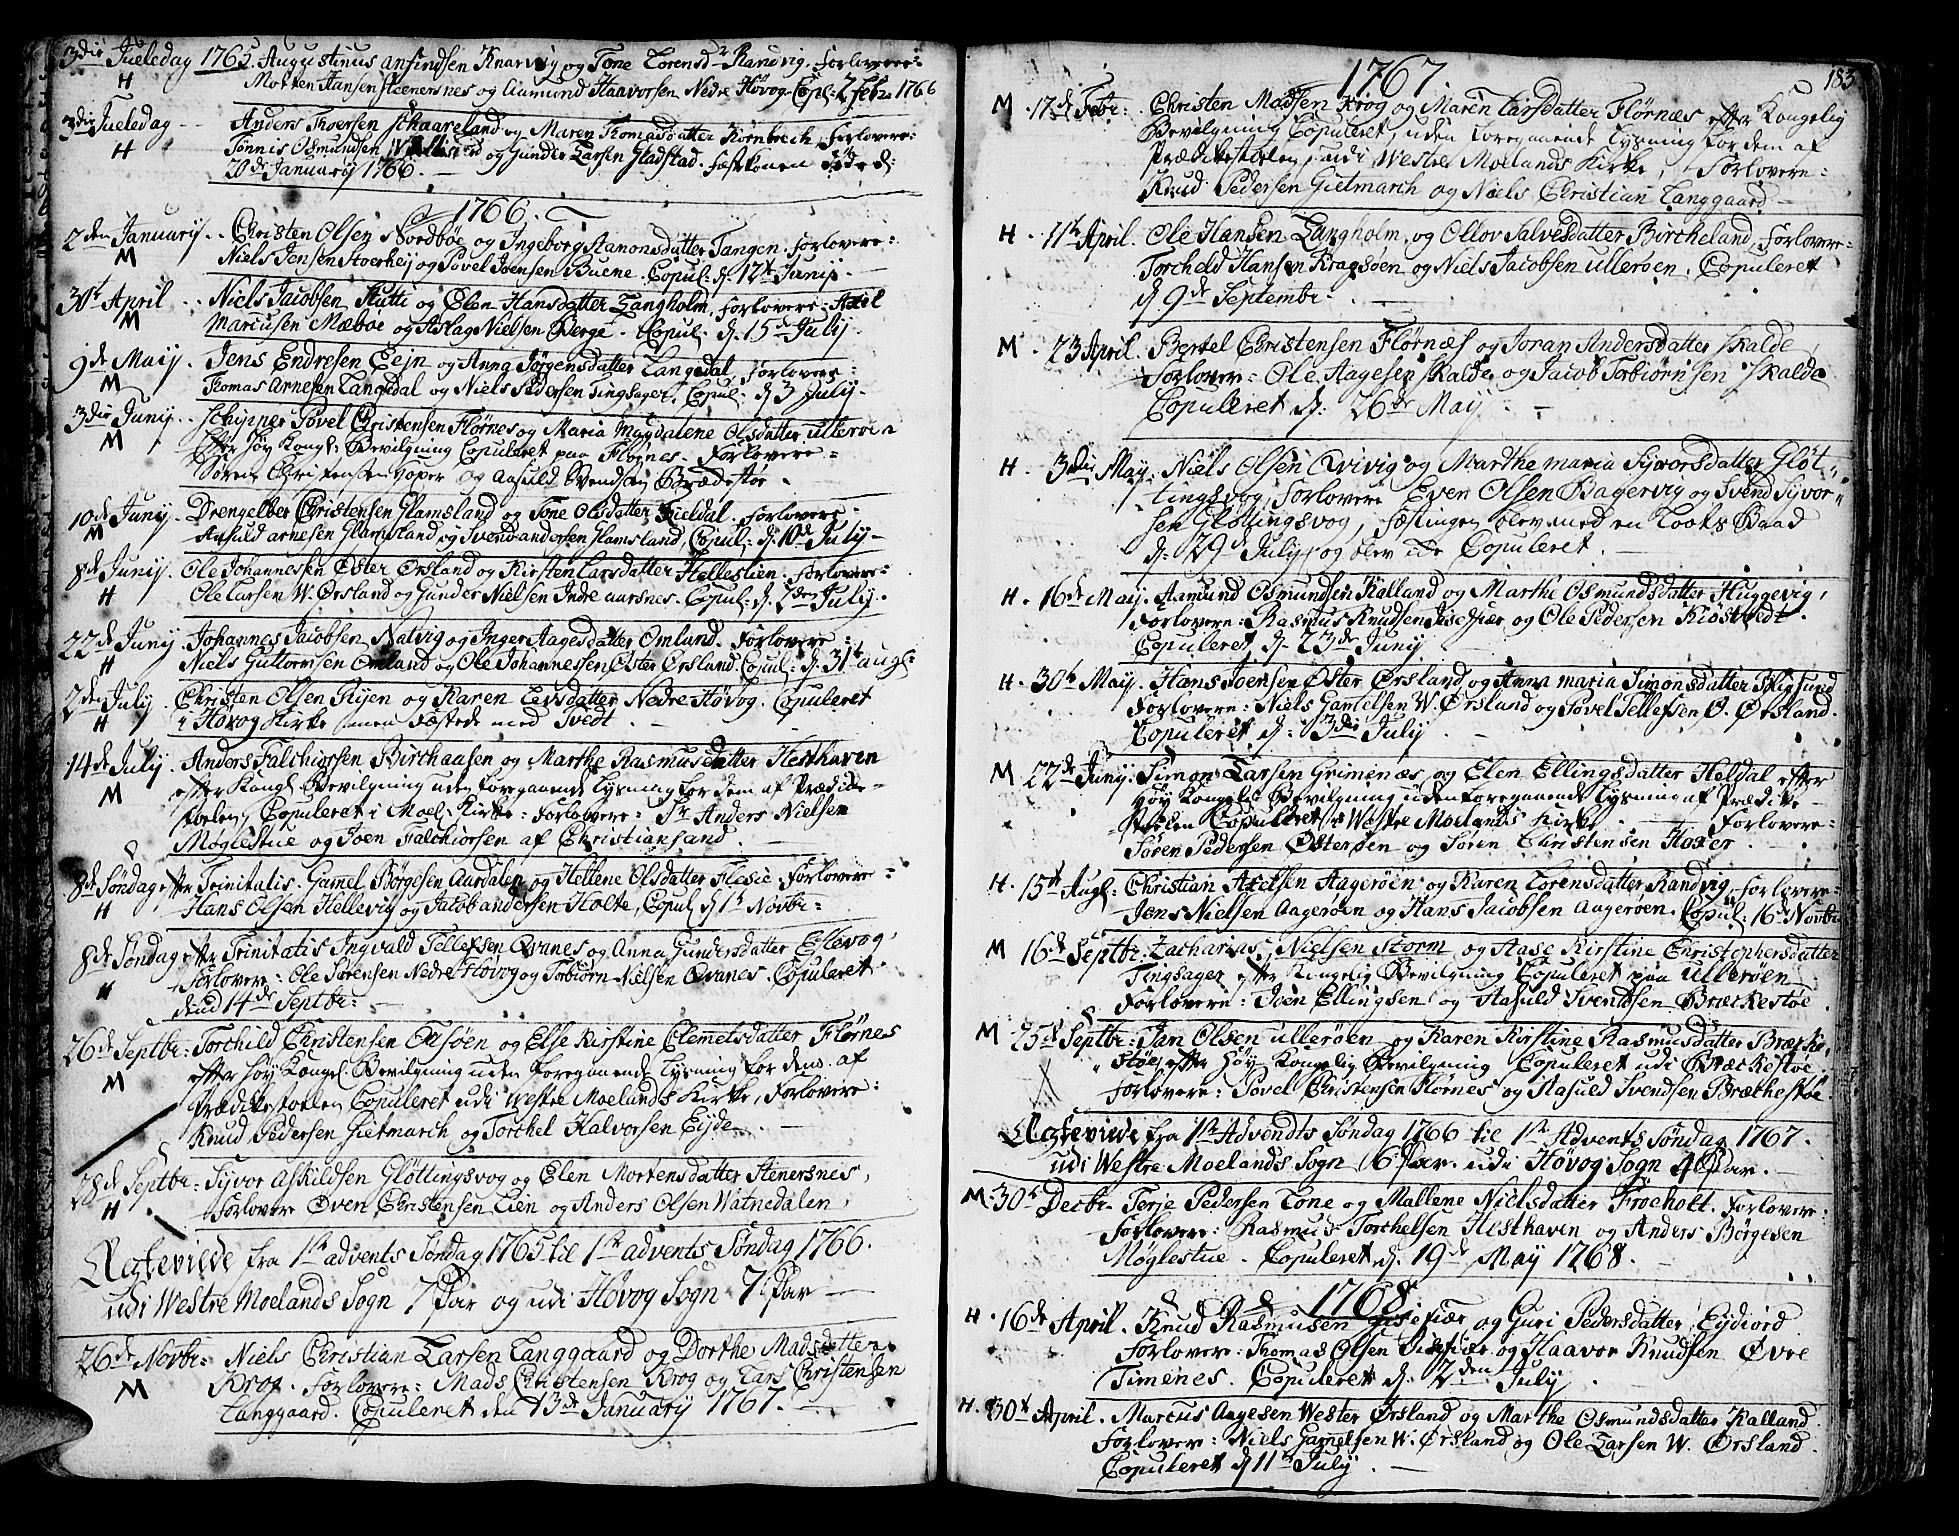 3die Jueledag 1765. Augustinus Anfindsen Knarvig og Tone Torensdr Randvig. Forlovere:
H
Morten Hansen Steenersnes og Aamund Haavorsen Nedre Høvog. Copl: 2 Febr. 1766
3die Jueledag
H
Anders Thoersen Skaareland og Maren Thomasdatter Kornbrech, Forlovere:
Tønnis Osmundsen og Gunder Larsen Gladstad. Fæstkonen døde d:
20de January 1766.
1766.
2den January
M
Christen Olsen Nordbøe og Ingeborg Aamonsdatter Tangen. Forlovere:
Niels Jensen Stoerheij og Søvel Joensen Buene. Copul: d. 12te Junij.
30te April
M
Niels Jacobsen Stutti og Elen Hansdatter Langholm. Forlovere: Axel
Marcusen Mæbøe og Aslag Nielsen Berge. Copul: d. 15de July.
9de Maij
M
Jens Endresen Eejn og Anna Jørgensdatter Langedal, Forlovere:
Thomas Arnesen Langedal og Niels Pedersen Tingsager, Copul: d. 3 July.
3die Junij
M
Schipper Søvel Christensen Flørnes og Maria Magdalene Olsdatter Ullerøen
efter Høy Kongl: Bevilgning Copuleret paa Flørnes. Forlovere:
Søren Christensen og Aasuld Svendsen Brædestøe.
10de Junij
M
Drengelber Christensen Glamsland og Tone Olsdatter Fieldal. Forlovere:
Aasuld Arnesen Glamsland og Svend Andersen Glamsland, Copul: d. 10de July
8de Junij.
H
Ole Johannesen Øster Ørsland og Kirsten Larsdatter Hellestien. Forlovere:
Ole Larsen W. Ørsland og Gunder Nielsen Indre Aarsnes. Copul: d. 2den July.
22de Junij
H
Johannes Jacobsen Natvig og Inger Aagesdatter Omland. Forlovere:
Niels Guttormsen Omland og Ole Johannessen Øster Ørsland. Copul: d. 31te Augl:
2den July
H
Christen Olsen Stijen og Karen Larsdatter Nedre Høvog. Copuleret
i Høvog Kirke men Fæstede med Tvedt.
14de July
M
Anders Falchiorsen Birchaasen og Marthe Rasmusdatter Hesthaven
efter Kongl Bevilgning uden foregaaende Lysning for dem af Prædike-
stolen, Copuleret i Moel. Kirke: Forlovere: Sr Anders Nielsen
Møglestue og Joen Falchiorsen af Christiansand.
8de Søndag efter Trinitatis. Gamel Børgesen Aardalen og Hellene Olsdatter Flesie. Forlovere:
H
Hans Olsen Hellevig og Jacob Andersen Holte, Copul. d. 1te Novbr:
8de Søndag efter Trinitatis Ingvald Tellefsen Qvanes og Anna Gundersdatter Eslevog,
H
Forlovere: Ole Sørensen Nedre Høvog og Torbiørn Nielsen Qvanes. Copuleret
dend 14de Septbr:
26de Septbr:
M
Torchild Christensen Oxsøen og Else Kirstine Clemetsdatter Flørnes
efter høy Kongel. Bevilgning uden foregaaende Lysning for dem af
Prædikestoelen Copuleret udi Westre Moelands Kirke, Forlovere:
Knud Pedersen Gietmarch og Torchel Halvorsen Eijde.
28de Septbr:
H
Syvor Askildsen Gløttingsvog og Elen Mortensdatter Stenersnes,
Forlovere Øven Christensen Lien og Anders Olsen Watnedalen,
Ægteviede fra 1te advents Søndag 1765 til 1te advents Søndag 1766.
udi Westre Moelands Sogn 7 Par og udi Høvog Sogn 7 Par
26de Novbr:
M
Niels Christian Larsen Langgaard og Dorthe Madsdatter
Krog. Forlovere: Mads Christensen Krog og Lars Christensen
Langgaard. Copuleret den 13de January 1767.
183
1767.
M. 17de Febr: Christen Madsen Krog og Maren Larsdatter Flørnæs efter Kongelig
Bevilgning Copuleret, uden foregaaende Lysning for dem af
Prædikestolen, udi Westre Moelands Kirke, Forlovere:
Knud Pedersen Gietmarch og Niels Christian Langgaard
H. 11te April. Ole Hansen Langholm og Ollov Salvesdatter Bircheland, Forlovere:
Torcheld Hansen Kragsøen og Niels Jacobsen Ullerøen. Copuleret
d. 9de Septembr.
M. 23 April. Bertel Christensen Flørnæs og Joran Andersdatter Skalde,
Forlover: Ole Aagesen Skalde og Jacob Torbiørnsen Skalde
Copuleret d: 26de May.
H. 3die May. Niels Olsen Qvivig og Marthe Maria Syvorsdatter Gløt-
tingsvog, Forlovere Even Olsen Bagervig og Svend Syvor-
sen Gløttingsvog, Fæstingen blev med en Baad
d. 29de July, og blev ide Copuleret.
H. 16de May. Aamund Osmundsen Kalland og Marthe Osmundsdatter Huggevig,
Forlovere: Rasmus Knudsen Isefiær og Ole Pedersen Kiøstvedt.
Copuleret, d. 23de Junij
H. 30te May. Hans Joensen Øster Ørsland og Anna Maria Simonsdatter Skigsund
Forlovere: Niels Gamelsen W. Ørsland og Søvel Tellefsen Ø. Ørsland.
Copuleret d: 3die July.
M 22de Junij: Simon Larsen Grimenæs og Elen Ellingsdatter Heldal efter
Høy Kongelig Bevilgning uden foregaaende Lysning af Prædike-
stoelen Copuleret i Westre Moelands Kirke. Forlovere:
Søren Pedersen Østerøen og Søren Christensen Hoxer.
H. 15te Augl: Christian Axelsen Aagerøen og Karen Torensdatter Randvig, Forlovere:
Jens Nielsen Aagerøen og Hans Jacobsen Aagerøen. Copul: 16de Novbr
M 16de Septbr: Zacharias Nielsen Storm og Aase Kirstine Christophersdatter
Tingsager efter Kongelig Bevilgning Copuleret paa Ullerøen.
Forlovere: Joen Ellingsen og Aasuld Svendsen Brækkestøe
M 25de Septbr: Jan Olsen Ullerøen og Karen Kirstine Rasmusdatter Bræcke-
støe, efter høy Kongelig Bevilgning Copuleret udi Bræckestøe.
Forlovere: Søvel Christensen Flørnes og Aasuld Svendsen Brækkestøe.
Ægteviede fra 1te Advents Søndag 1766 til 1te Advents Søndag 1767.
udi Westre Moelands Sogn 6 Par. udi Høvog Sogn 4 Par.
M. 30te Decbr. Terje Pedersen Tone og Mallene Nielsdatter Frøeholt. Forlovere:
Forlovere: Rasmus Torchelsen Hesthaven og Anders Børgesen
Møglestue. Copuleret d. 19de May 1768.
1768.
H. 16de April. Knud Rasmusen Isefiær og Guri Pedersdatter Eijdiord
Forlovere: Thomas Olsen Isefiær og Haavor Knudsen Øvre
Timenes. Copuleret d. 2den July
H. 30te April. Marcus Aagesen Wester Ørsland og Marthe Osmundsdatter Kalland.
Forlovere: Niels Gamelsen W. Ørsland og Ole Larsen W. Ørsland.
Copuleret d. 11te July.